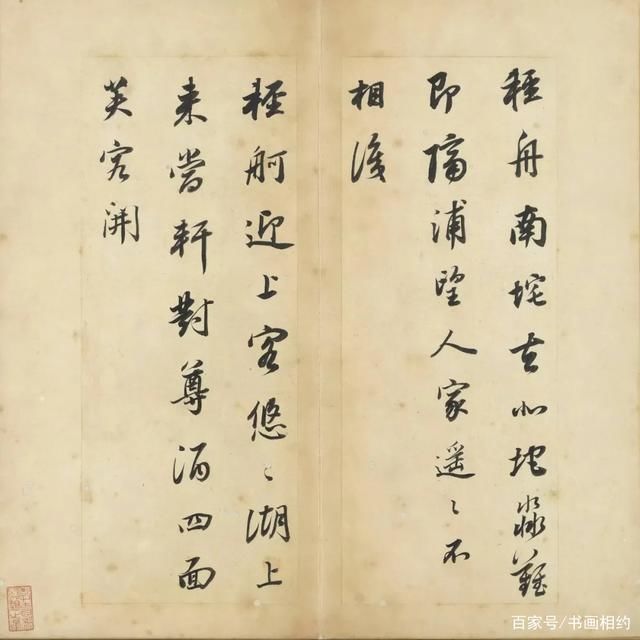 輕舟南垞去北垞淼難
即隔浦望人家遥〻不
相識
輕舸迎上客悠〻湖上
来當軒對尊酒四面
芙容開
百家号/书画相约